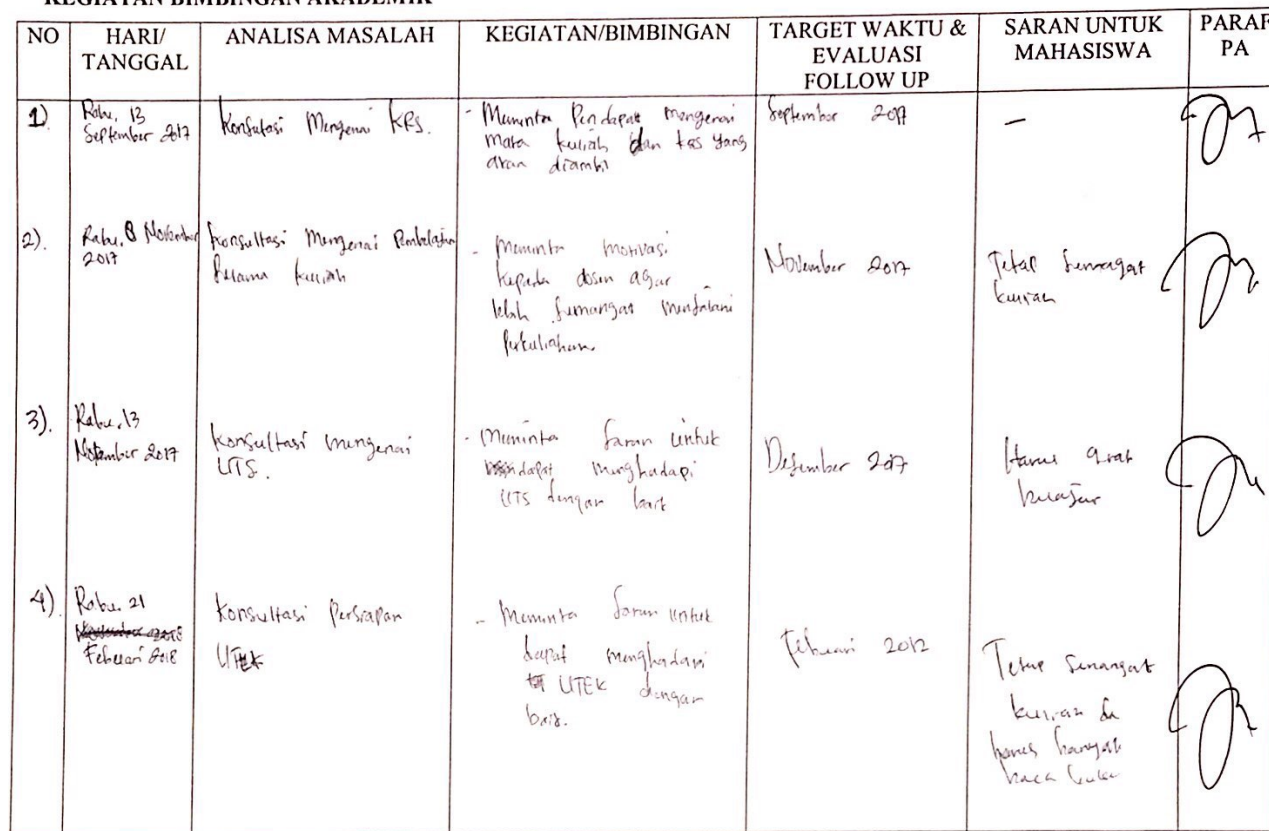 KEGIATAN BIMBINGAN AKADEMIK
NO HARI/ TANGGAL ANALISA MASALAH KEGIATAN/BIMBINGAN TARGET WAKTU & EVALUASI FOLLOW UP SARAN UNTUK MAHASISWA PARAF PA
1) Rabu, 13
September 2017
Konsultasi Mengenai KRS.
- Meminta Pendapat mengenai
mata kuliah dan krs yang
akan diambil
September 2017
-
2). Rabu, 8 November
2017
Konsultasi Mengenai Pembelajaran
Selama kuliah
- Meminta motivasi
kepada dosen agar
lebih semangat menjalani
Perkuliahan
November 2017
Tetap Semangat
kuliah
3). Rabu, 13
2017
Konsultasi mengenai
UTS.
- Meminta Saran untuk
dapat menghadapi
UTS dengan baik
Desember 2017
Harus giat
belajar
4). Rabu, 21
Februari 2018
Konsultasi Persiapan
- Meminta Saran untuk
dapat menghadapi
UTEK dengan
baik.
Februari 2012
Tetap Semangat
kuliah &
harus banyak
baca buku